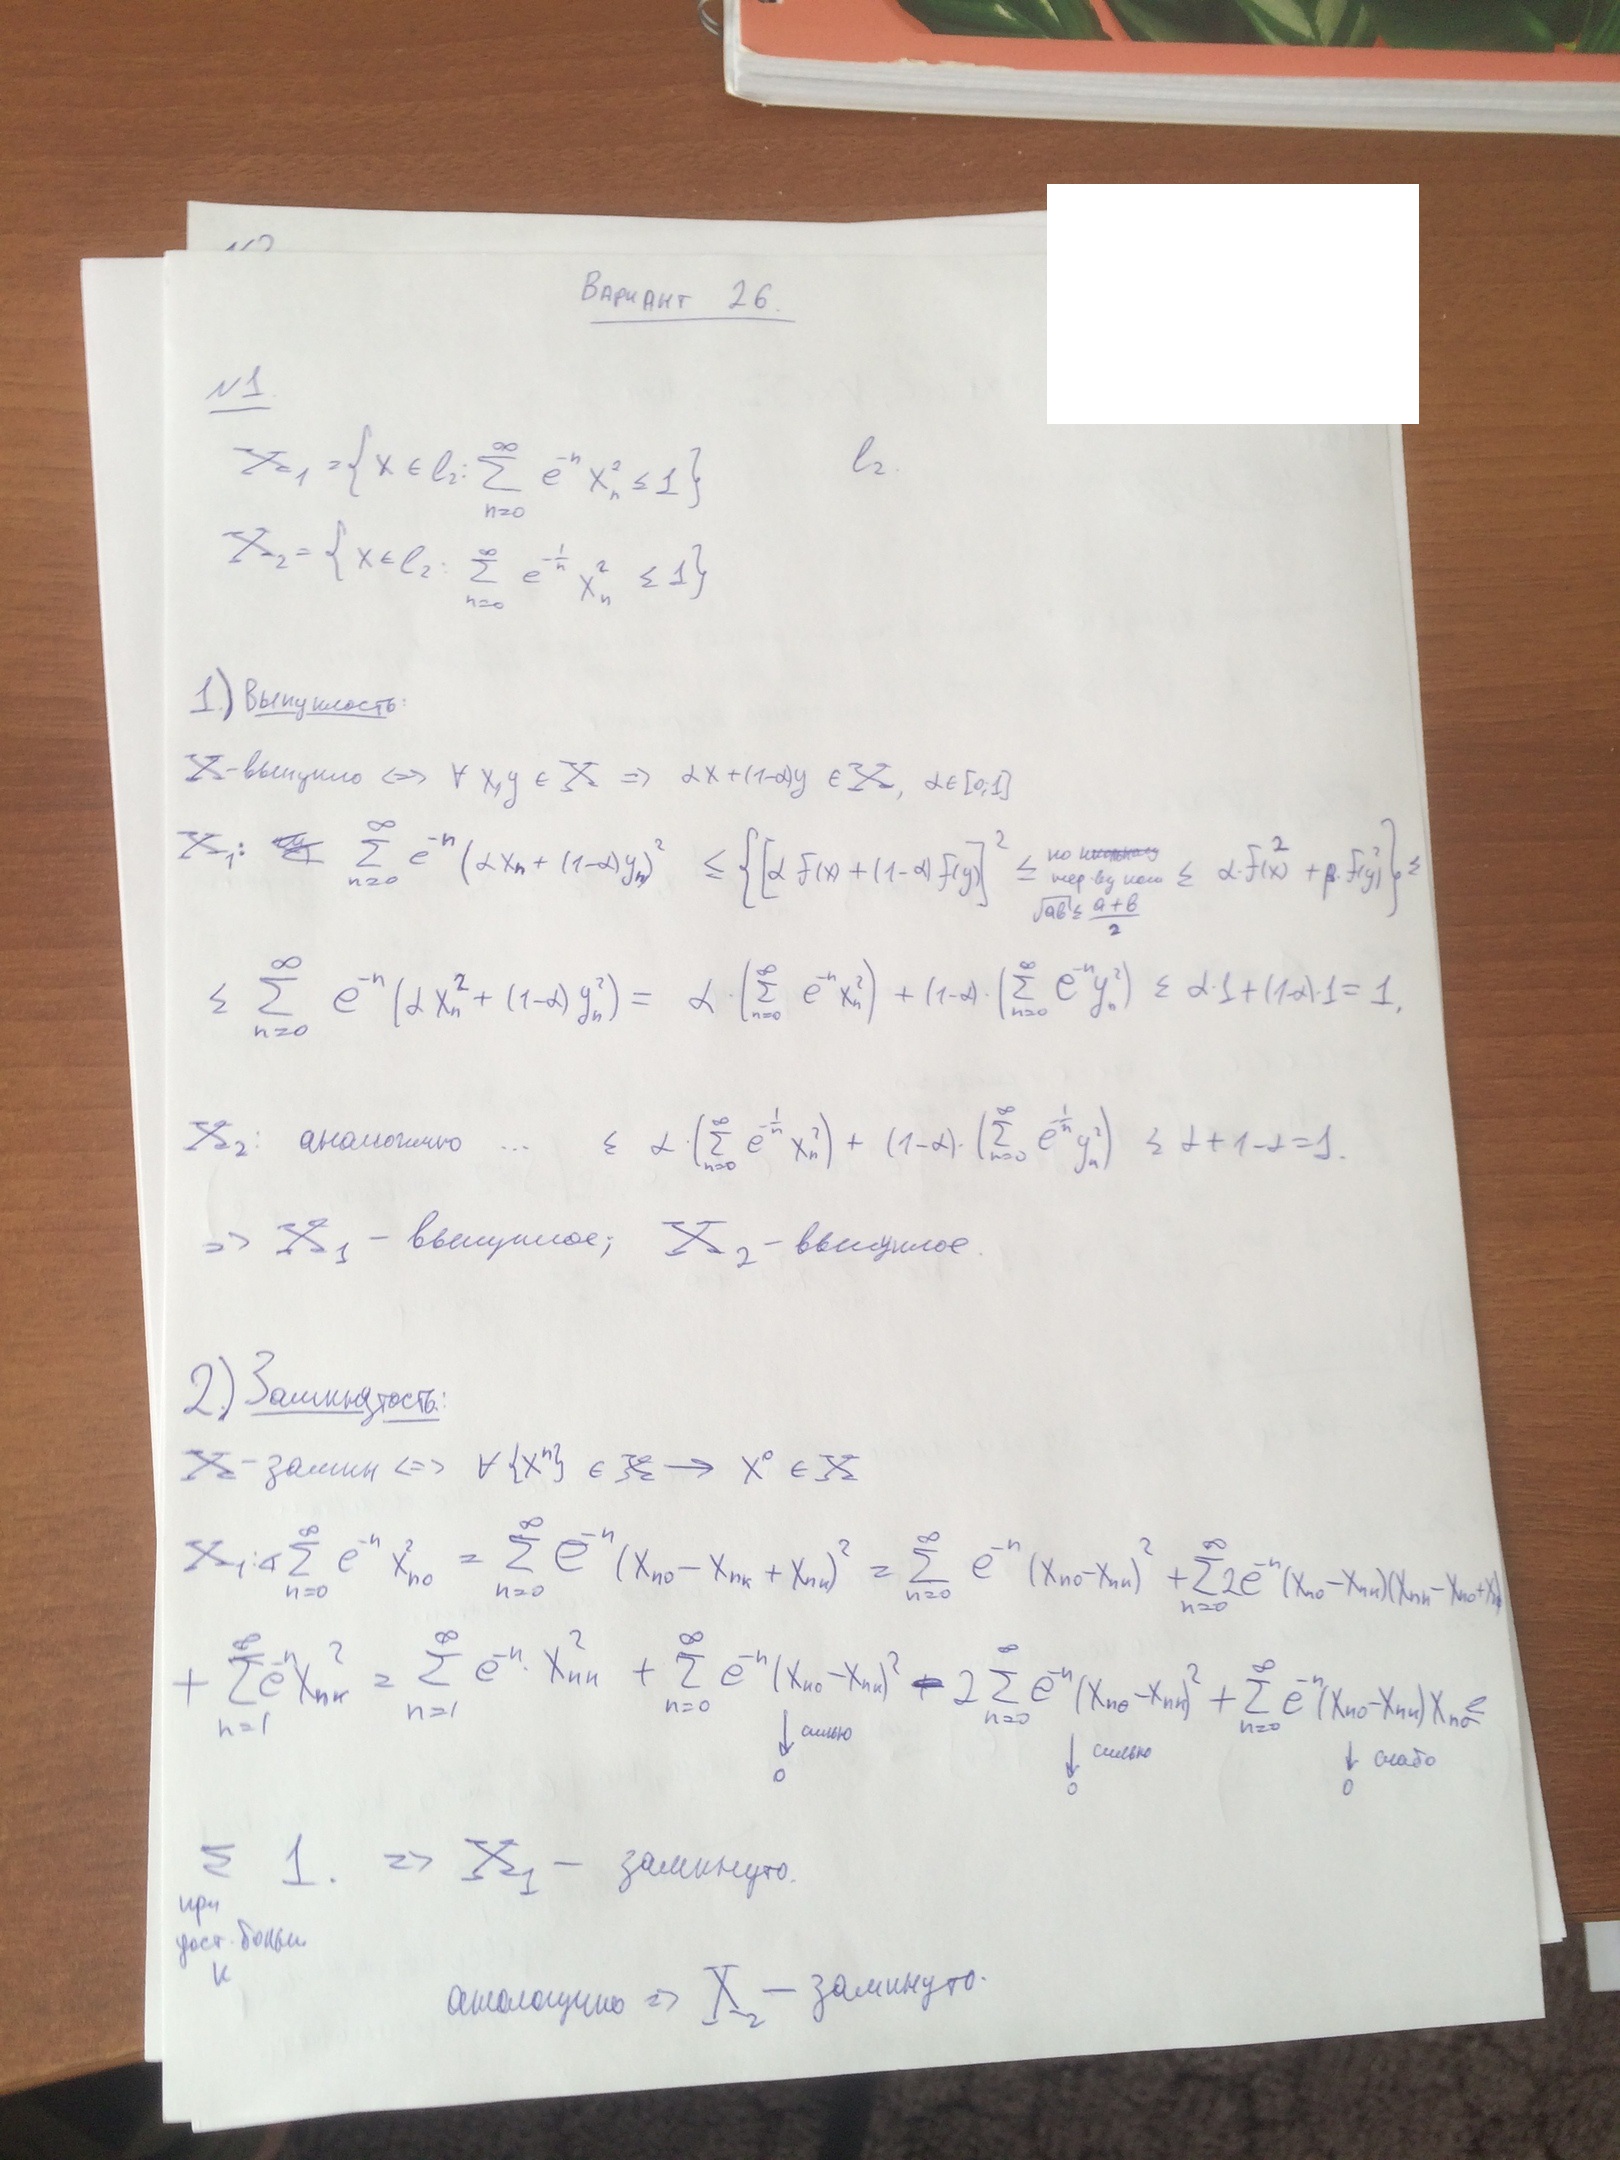 Вариант 26.
№1.
X₁ = {x ∈ l₂: ∑_{n=0}^{∞} e^{-n} x_n² ≤ 1} l₂.
X₂ = {x ∈ l₂: ∑_{n=0}^{∞} e^{-1/n} x_n² ≤ 1}
1.) Выпуклость:
X - выпукло <=> ∀ x,y ∈ X => αx + (1-α)y ∈ X, α ∈ [0;1]
X₁: ∑_{n=0}^{∞} e^{-n} (αx_n + (1-α)y_n)² ≤ {[α f(x) + (1-α) f(y)]² ≤ по нер-ву √ab ≤ (a+b)/2 ≤ α·f(x)² + β·f(y)²} ≤
≤ ∑_{n=0}^{∞} e^{-n} (αx_n² + (1-α) y_n²) = α·(∑_{n=0}^{∞} e^{-n} x_n²) + (1-α)·(∑_{n=0}^{∞} e^{-n} y_n²) ≤ α·1 + (1-α)·1 = 1.
X₂: аналогично ... ≤ α·(∑_{n=0}^{∞} e^{-1/n} x_n²) + (1-α)·(∑_{n=0}^{∞} e^{-1/n} y_n²) ≤ α + 1 - α = 1.
=> X₁ - выпуклое; X₂ - выпуклое.
2.) Замкнутость:
X - замкн <=> ∀ {xⁿ} ∈ X → x⁰ ∈ X
X₁: ∑_{n=0}^{∞} e^{-n} x_{n0}² = ∑_{n=0}^{∞} e^{-n} (x_{n0} - x_{nk} + x_{nk})² = ∑_{n=0}^{∞} e^{-n} (x_{n0} - x_{nk})² + ∑_{n=0}^{∞} 2e^{-n} (x_{n0} - x_{nk})(x_{nk} - x_{n0} +
+ ∑_{n=1}^{∞} e^{-n} x_{nk}² = ∑_{n=1}^{∞} e^{-n} · x_{nk}² + ∑_{n=0}^{∞} e^{-n} (x_{n0} - x_{nk})² - 2 ∑_{n=0}^{∞} e^{-n} (x_{n0} - x_{nk})² + ∑_{n=0}^{∞} e^{-n} (x_{n0} - x_{nk}) x_{n0} ≤
↓ сильно ↓ сильно ↓ слабо
0 0 0
≤ 1. => X₁ - замкнуто.
при
дост. больш.
k
аналогично => X₂ - замкнуто.